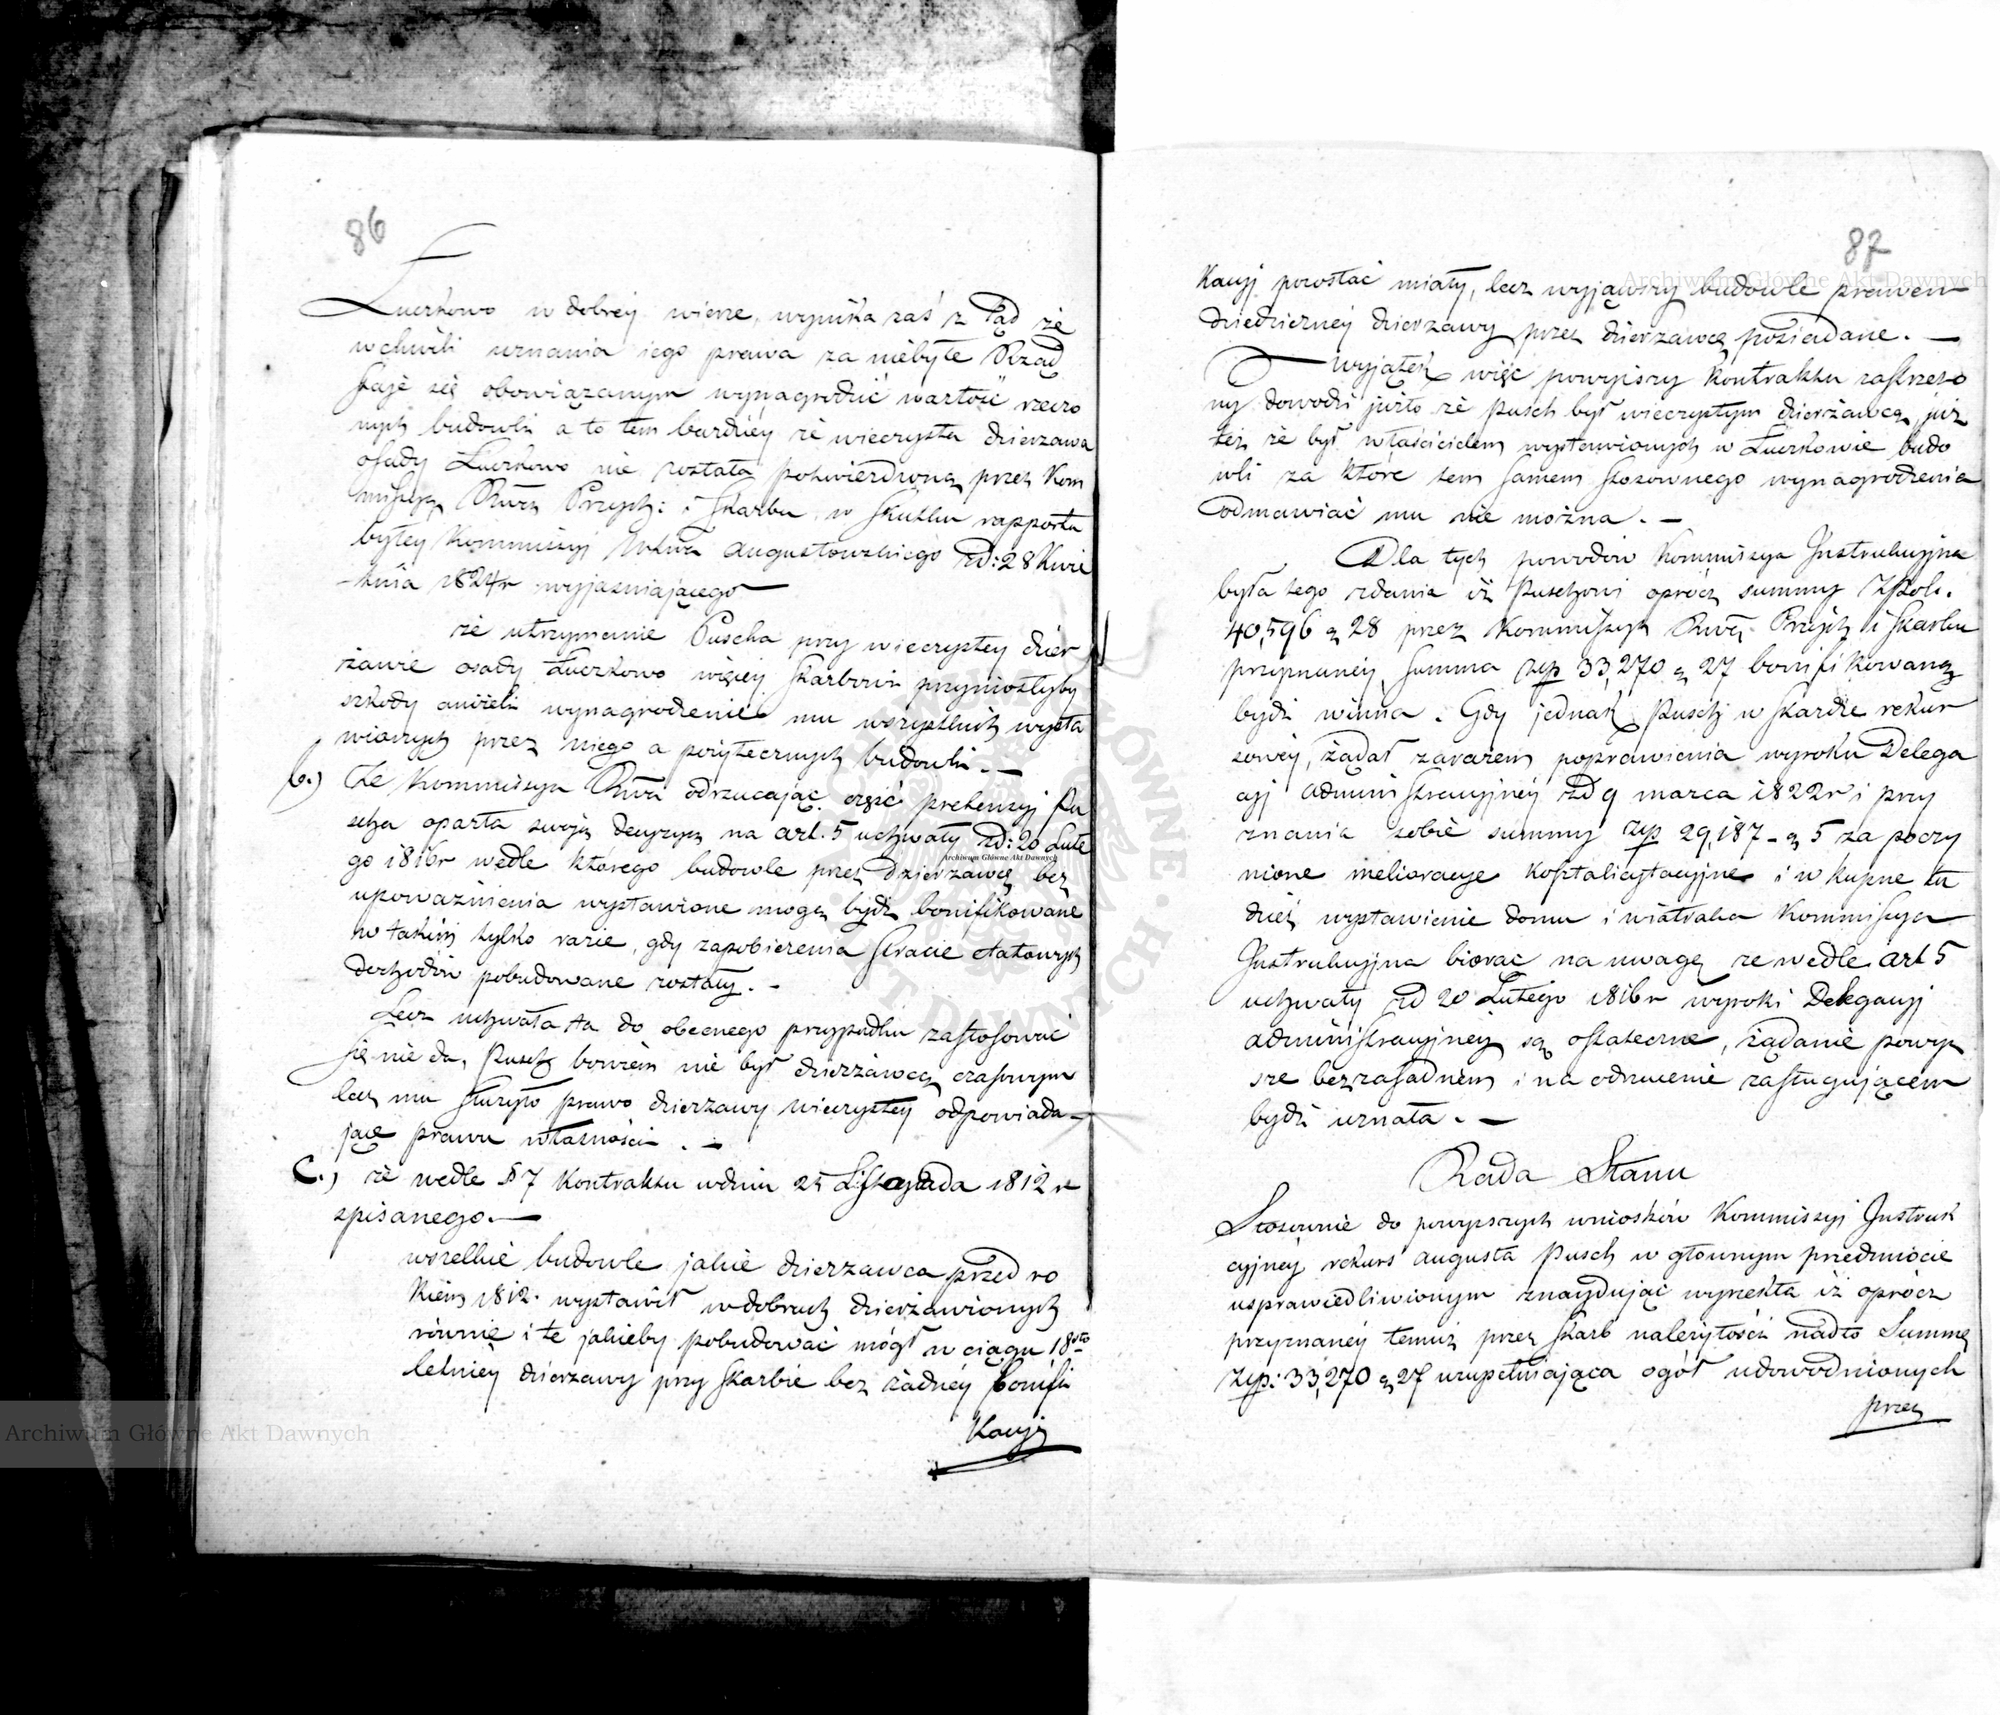 86
Łuczkowo w dobréy wierze, wynika zaś z tąd że
w chwili uznania iego prawa za niebyłe Rząd
staje się obowiązanym wynagrodzić wartość rzeczo
nych budowli a to tem bardziéy że wieczysta dzierzawa
osady Łuczkowo nie została potwierdzoną przez Kom
missyą Rząż Przych: i Skarbu, w skutku rapportu
byłey Kommissyi Wdzka Augustowskiego zd: 28 Kwie
tnia 1824r wyjasniającego
że utrzymanie Puscha przy wieczystey dzier
żawie osady Łuczkowo więcéy Skarbowi przyniosłyby
szkody aniżeli wynagrodzenie mu wszystkich wysta
wionych przez niego a pożytecznych budowli. —
b.) Że Kommissya Rzwa odrzucając część pretensyj Pu
scha oparła swoję decyzyą na art. 5 uchwały zd: 20 Lute
go 1816r wedle którego budowle przez Dzierzawcę bez
upoważnienia wystawione mogą bydź bonifikowane
w takim tylko razie, gdy zapobieżenia stracie etatowych
dochodów pobudowane zostały. —
Lecz uchwała ta do obecnego przypadku zastosować
się nie da, Pusch bowiem nie był dzierżawcą czasowym
lecz mu służyło prawo dzierzawy wieczystey odpowiada-
jące prawu własności. —
C.) że wedle § 7 Kontraktu w dniu 25 Listopada 1812 r
spisanego. —
wszelkie budowle jakie dzierzawca przed ro
kiem 1812. wystawił w dobrach dzierżawionych
równie i te jakieby pobudować mógł w ciągu 18sto
letniéy dzierzawy przy Skarbie bez żadnéy bonifi
kacyi
87
kacyj powstać miały, lecz wyjąwszy budowle prawem
dziedzicznéy dzierzawy przez dzierzawcę posiadane. —
Wyjątek więc powyższy Kontraktu zastrzeżo
ny dowodzi już to że Pusch był wieczystym dzierżawcą, już
też że był właścicielem wystawionych w Łuczkowie budo
wli za które tem samem stosownego wynagrodzenia
odmawiać mu nie można. —
Dla tych powodów Kommissya Instrukcyjna
była tego zdania iż Puschowi oprócz summy Złpol.
40,596 g 28 przez Kommissyą Rzwą Przych i Skarbu
przyznanéy, summa złp 33,270 g 27 bonifikowaną
bydź winna. Gdy jednak Pusch w skardze rekur
sowéy, żądał zarazem poprawienia wyroku Delega
cyj administracyjnéy zd 9 marca 1822r i przy
znania sobie summy złp 29,187 - g 5 za poczy
nione melioracye Kosztalicytacyjne i w kupne tu
dzież wystawienie domu i wiatraka Kommissya
Instrukcyjna biorąc na uwagę że wedle art 5
uchwały zd 20 Lutego 1816r wyroki Delegacyj
administracyjney są ostateczne, żądanie powyż
sze bezzasadnem i na odrzucenie zasługującem
bydź uznała. —
Rada Stanu
Stosownie do powyższych wniosków Kommissyi Instruk
cyjnéy rekurs Augusta Pusch w głownym przedmiocie
usprawiedliwionym znaydując wyrzekła iż oprócz
przyznanéy temuż przez Skarb należytości nadto Summę
złp: 33,270 g 27 uzupełniająca ogół udowodnionych
przez
Archiwum Główne Akt Dawnych
Archiwum Główne Akt Dawnych
Archiwum Główne Akt Dawnych